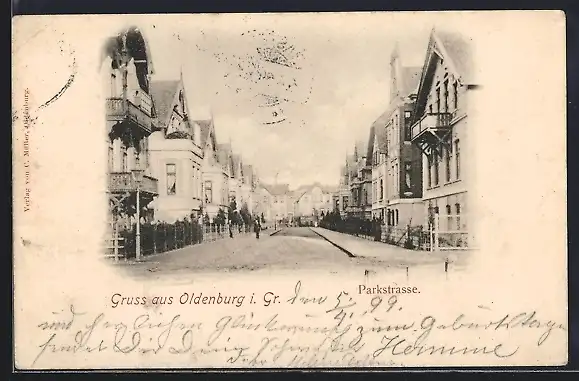 Verlag von C. Müller, Oldenburg.
Parkstrasse.
Gruss aus Oldenburg i. Gr. den 5. 4. 99.
und herzlichen Glückwunsch zum Geburtstage
sendet Dir Dein
Hemme